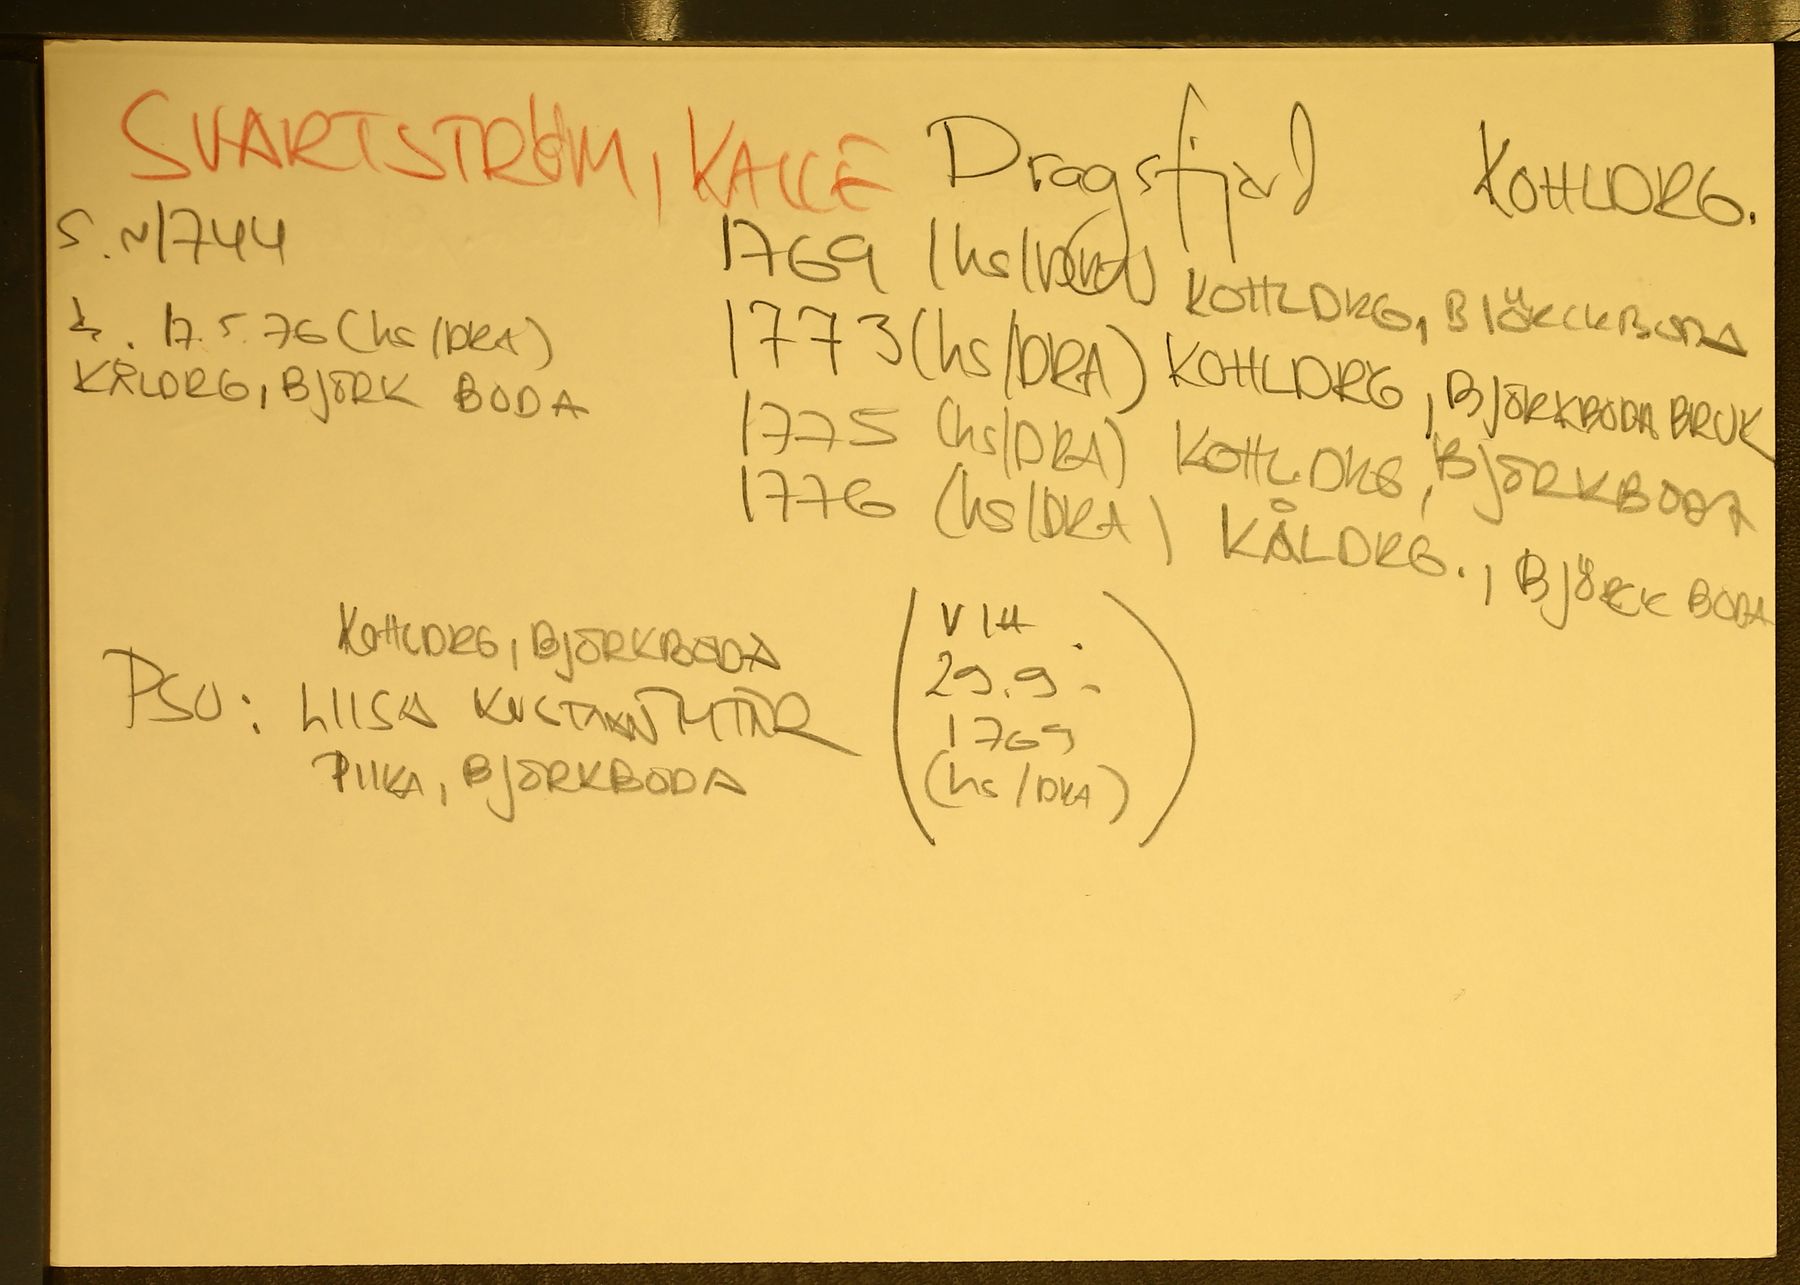 SVARTSTRÖM, KALLE Dragsfjärd KOHLDRG.
S. ~1744
k. 17.5.76 (hs/DRA)
KÅLDRG, BJÖRK BODA
1769 (hs/DRA) KOHLDRG, BJÖRCKBODA
1773 (hs/DRA) KOHLDRG, BJÖRKBODA BRUK
1775 (hs/DRA) KOHLDRG, BJÖRKBODA
1776 (hs/DRA) KÅLDRG., BJÖRCK BODA
KOHLDRG, BJÖRKBODA
PSO: LIISA KUSTAANTYTÄR
PIIKA, BJÖRKBODA
(VIH
29.9.
1769
(hs/DRA))